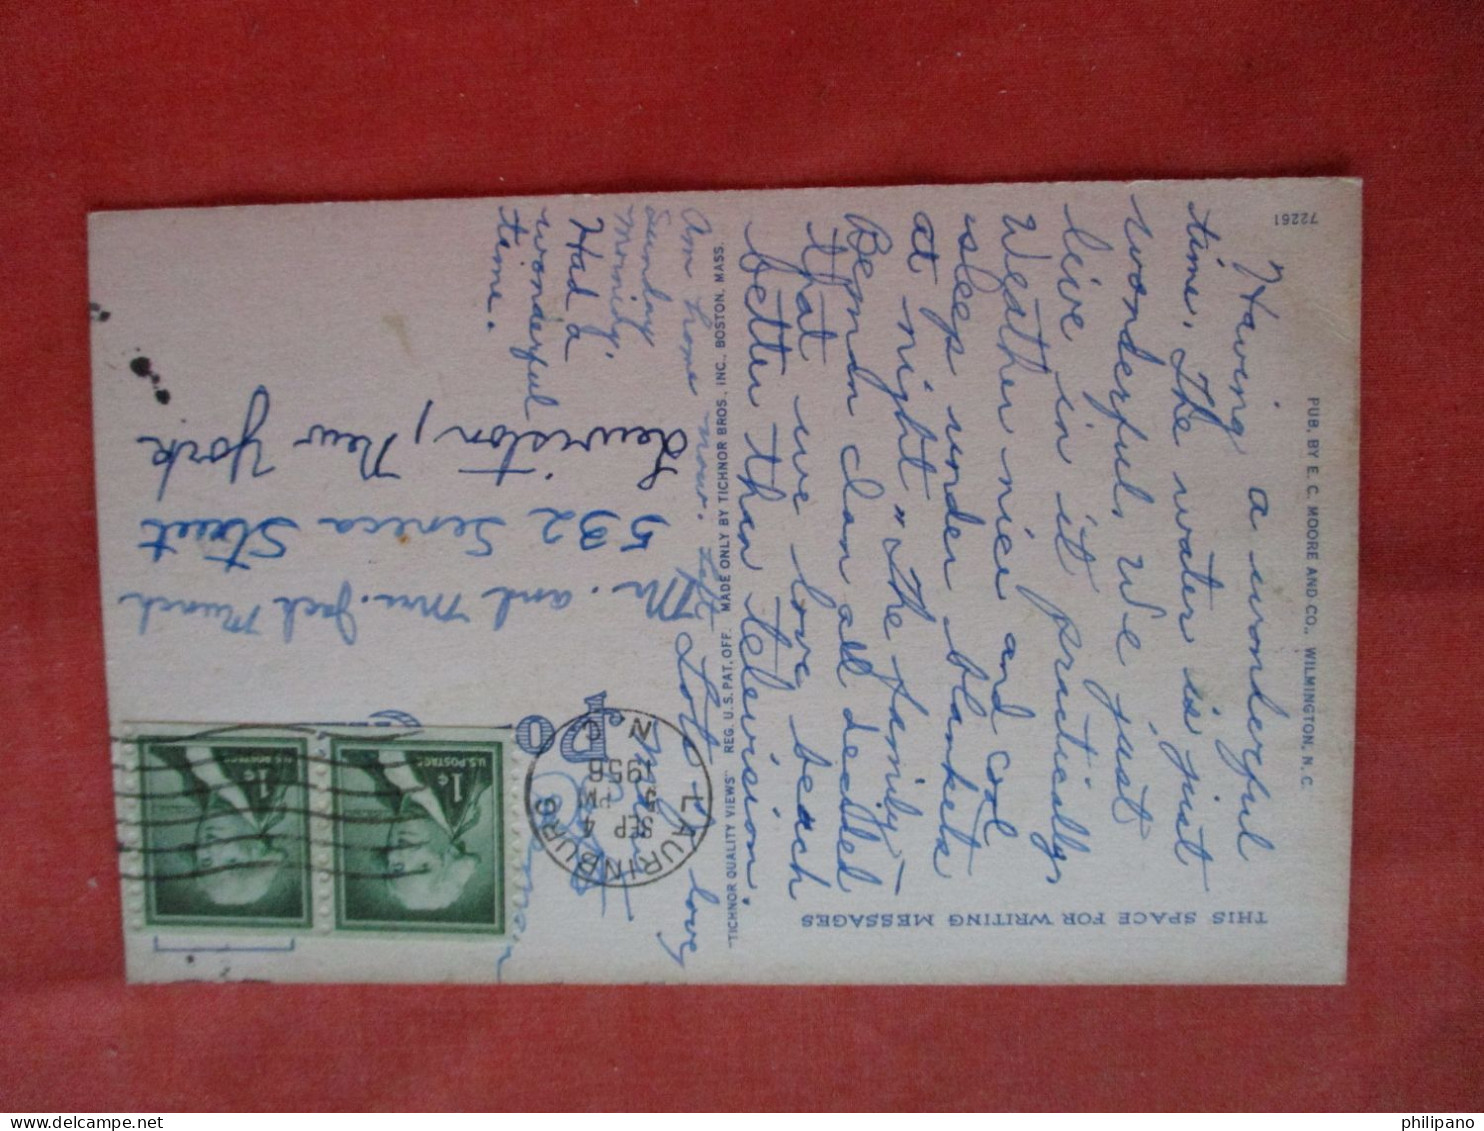 72261
PUB. BY E. C. MOORE AND CO., WILMINGTON, N. C.
THIS SPACE FOR WRITING MESSAGES
Having a wonderful
time. The water is just
wonderful. We just
live in it practically.
Weather nice and cool
sleep under blankets
at night "The family-
Bemdn clan all decided
that we love beach
better than television.
"TICHNOR QUALITY VIEWS" REG. U. S. PAT. OFF. MADE ONLY BY TICHNOR BROS., INC., BOSTON, MASS.
Lots love,
am home now. Left
Sunday
Mornidy.
Had a
wonderful
time.
LAURINBURG
SEP 4
PM
1956
N. C.
U.S. POSTAGE
1¢
U.S. POSTAGE
1¢
Mr. and Mrs. Jack Munch
532 Seneca Street
Lewiston, New York
philipano